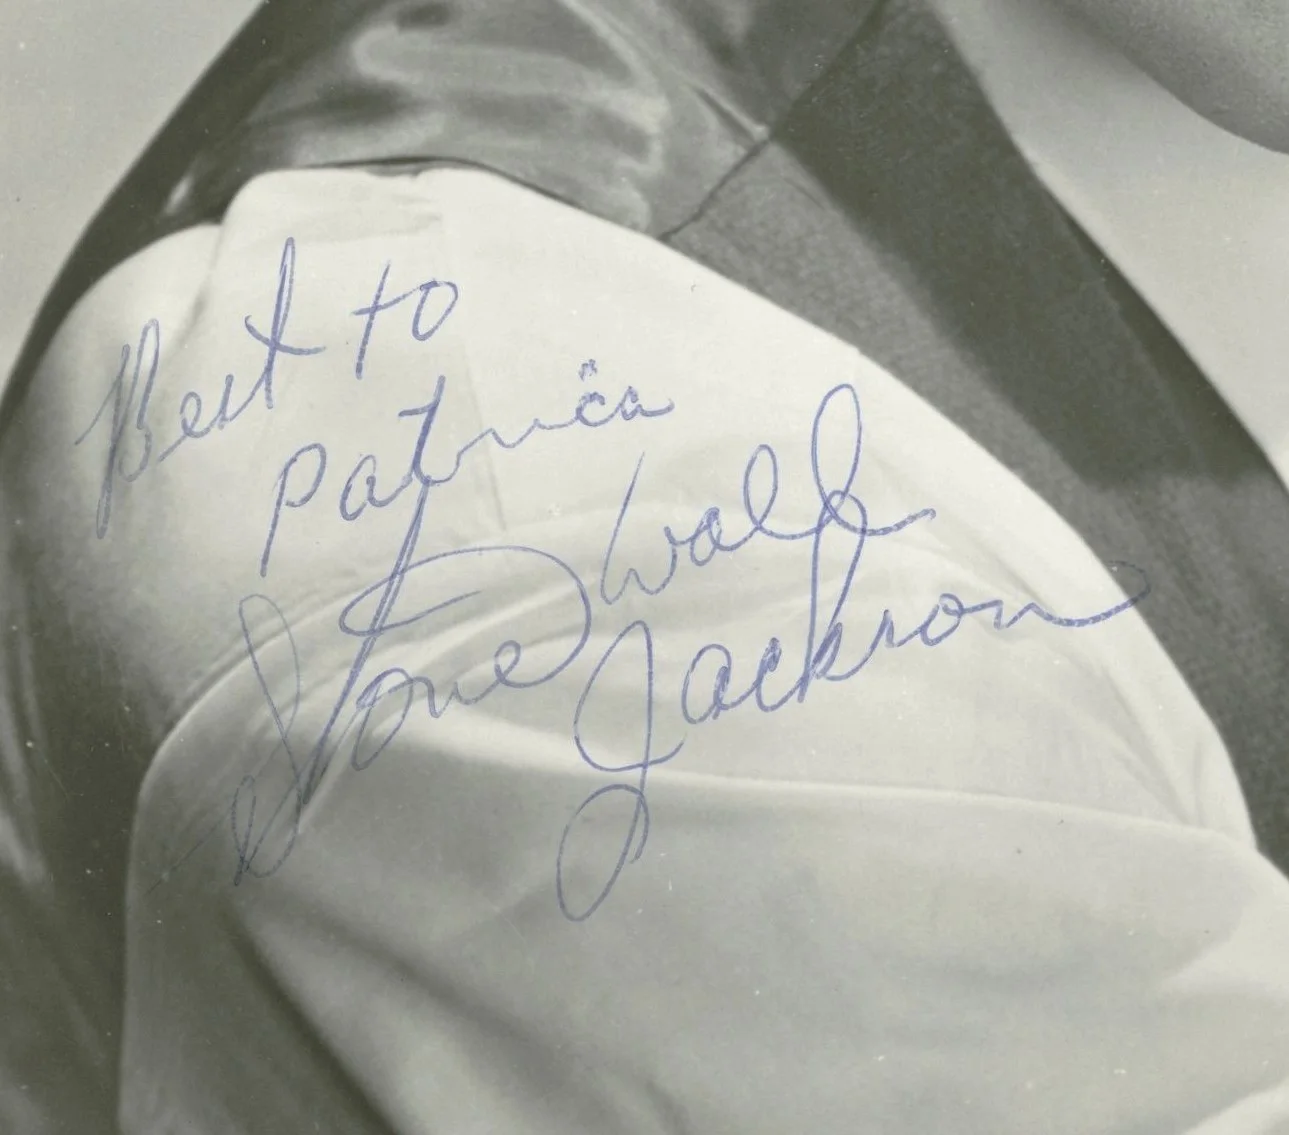 Best to
Patricia
Stonewall
Jackson